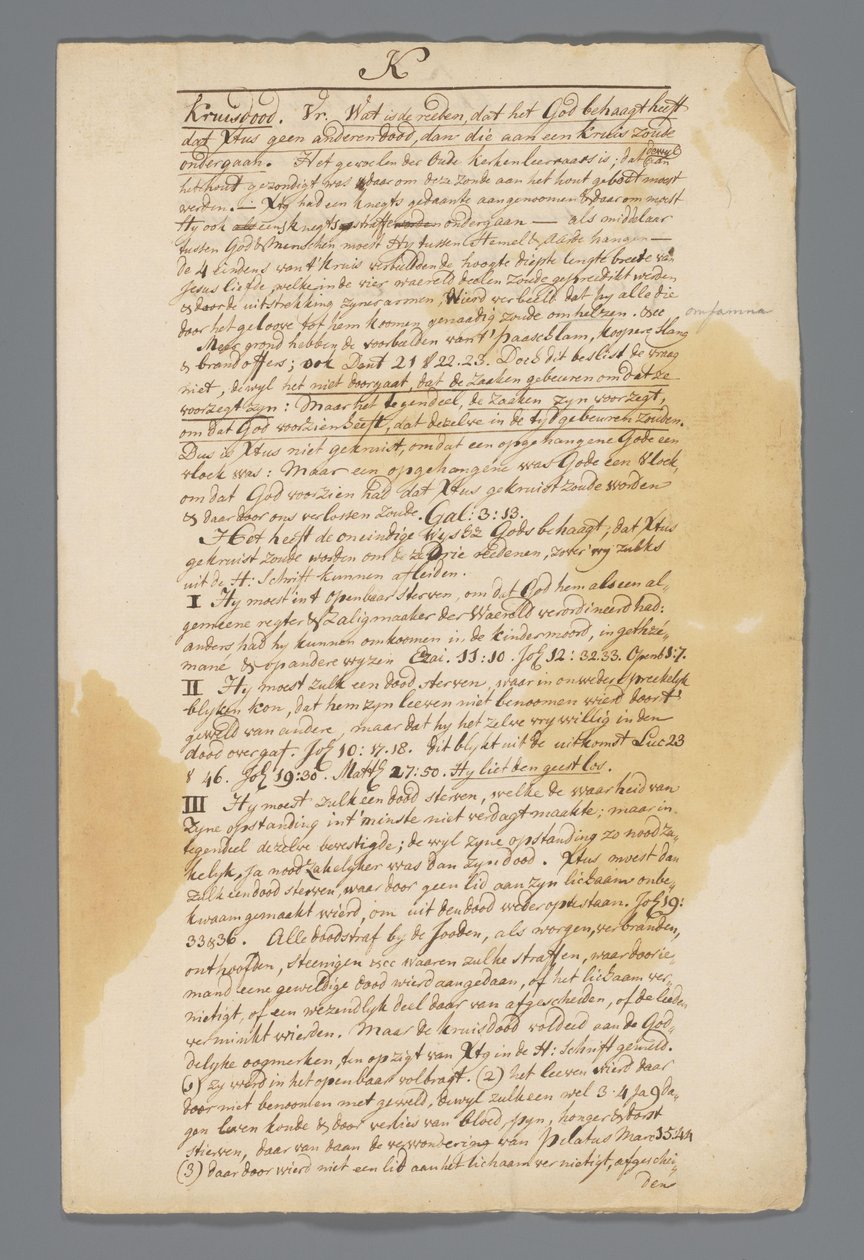 K
Kruisdood. Vr. Wat is de reeden, dat het God behaagt heeft
dat Xtus geen anderen dood, dan die aan een Kruis zoude
ondergaan. Het gevoelen der Oude kerkenleeraars is; dat dewyl aan
het hout gezondigt was daarom deze zonde aan het hout geboet moest
werden. — Xtg had een knegts gedaante aangenoomen & daarom moest
Hy ook als eens knegts straffe ondergaan — als middelaar
tussen God & Menschen moest Hy tussen Hemel & Aarde hangen —
de 4 eindens van 't kruis verbeeldende hoogte diepte lengte breete van
Jesus liefde, welke in de vier waereld deelen zoude gepredikt werden
& door de uitstrekking zyner armen, Wierd verbeeld dat hy alle die
door het geloove tot hem koomen genaadig zoude omhelzen. &cc
Meer grond hebben de voorbelden van 't paaschlam, koopere slang
& brandoffers; ook Deut 21 & 22.23. Doch dit beslist de vraag
niet, dewyl het niet doorgaat, dat de zaaken gebeuren om dat ze
voorzegt zyn: Maar het tegendeel, de zaaken zyn voorzegt,
om dat God voorzien heeft, dat dezelve in de tyd gebeuren zouden.
Dus is Xtus niet gekruist, om dat een opgehangene Gode een
vloek was: Maar een opgehangene was Gode een Vloek,
om dat God voorzien had dat Xtus gekruist zoude worden
& daar door ons verlossen zoude. Gal: 3: 13.
Het heeft de oneindige Wysh Gods behaagt, dat Xtus
gekruist zoude worden om deze Drie reedenen, zover wy zulks
uit de H: Schrift kunnen afleiden.
I Hy moest in 't openbaar sterven, om dat God hem als een al-
gemeene regter & Zaligmaaker der Waereld verordineerd had:
anders had hy kunnen omkoomen in de kindermoord, in gethze-
mane & op andere wyzen Ezai. 11:10. Joh 12: 32.33. Openb 1:7.
II Hy moest zulk een dood sterven, waar in onwedersprekelyk
blyken kon, dat hem zyn leeven niet benoomen wierd door 't
geweld van andere, maar dat hy het zelve vrywillig in den
dood overgaf. Joh 10: 17.18. dit blykt uit de uitkomst Luc 23
& 46. Joh 19:30. Matth 27:50. Hy liet den geest los.
III Hy moest zulk een dood sterven, welke de waarheid van
Zyne opstanding in 't minste niet verdagt maakte; maar in
tegendeel dezelve bevestigde; dewyl zyne opstanding zo noodza-
kelyk, Ja noodzakelyker was dan zyn dood. Xtus moest dan
zulk een dood sterven, waar door geen lid aan zyn lichaam onbe-
kwaam gemaakt wierd, om uit den dood weder op te staan. Joh 19:
33 & 36. Alle doodstraf by de Jooden, als worgen, verbranden,
onthoofden, steenigen &cc waaren zulke straffen, waar door ie-
mand eene geweldige dood wierd aangedaan, of het lichaam ver-
nietigt, of een wezendlyk deel daar van afgescheiden, of de leeden
verminkt wierden. Maar de kruisdood voldeed aan de God-
delyke oogmerken, ten opzigt van Xtg in de H: Schrift gemeld.
(1) zy werd in het openbaar volbragt. (2) het leeven wierd daar
door niet benoomen met geweld, dewyl zulk een wel 3. 4 Ja 9 Da-
gen leven konde & door verlies van bloed, pyn, honger & dorst
stierven, daar van daan de verwondering van Pilatus Marc 15:44
(3) daar door wierd niet een lid aan het lichaam vernietigt, afgeschei-
den